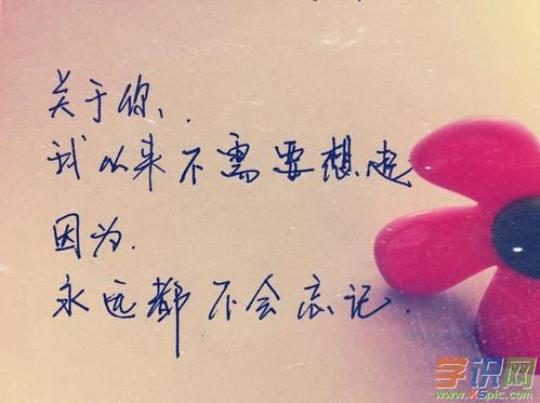 关于你、.
我从来不需要想起
因为.
永远都不会忘记.
学识网
www.XSpic.com